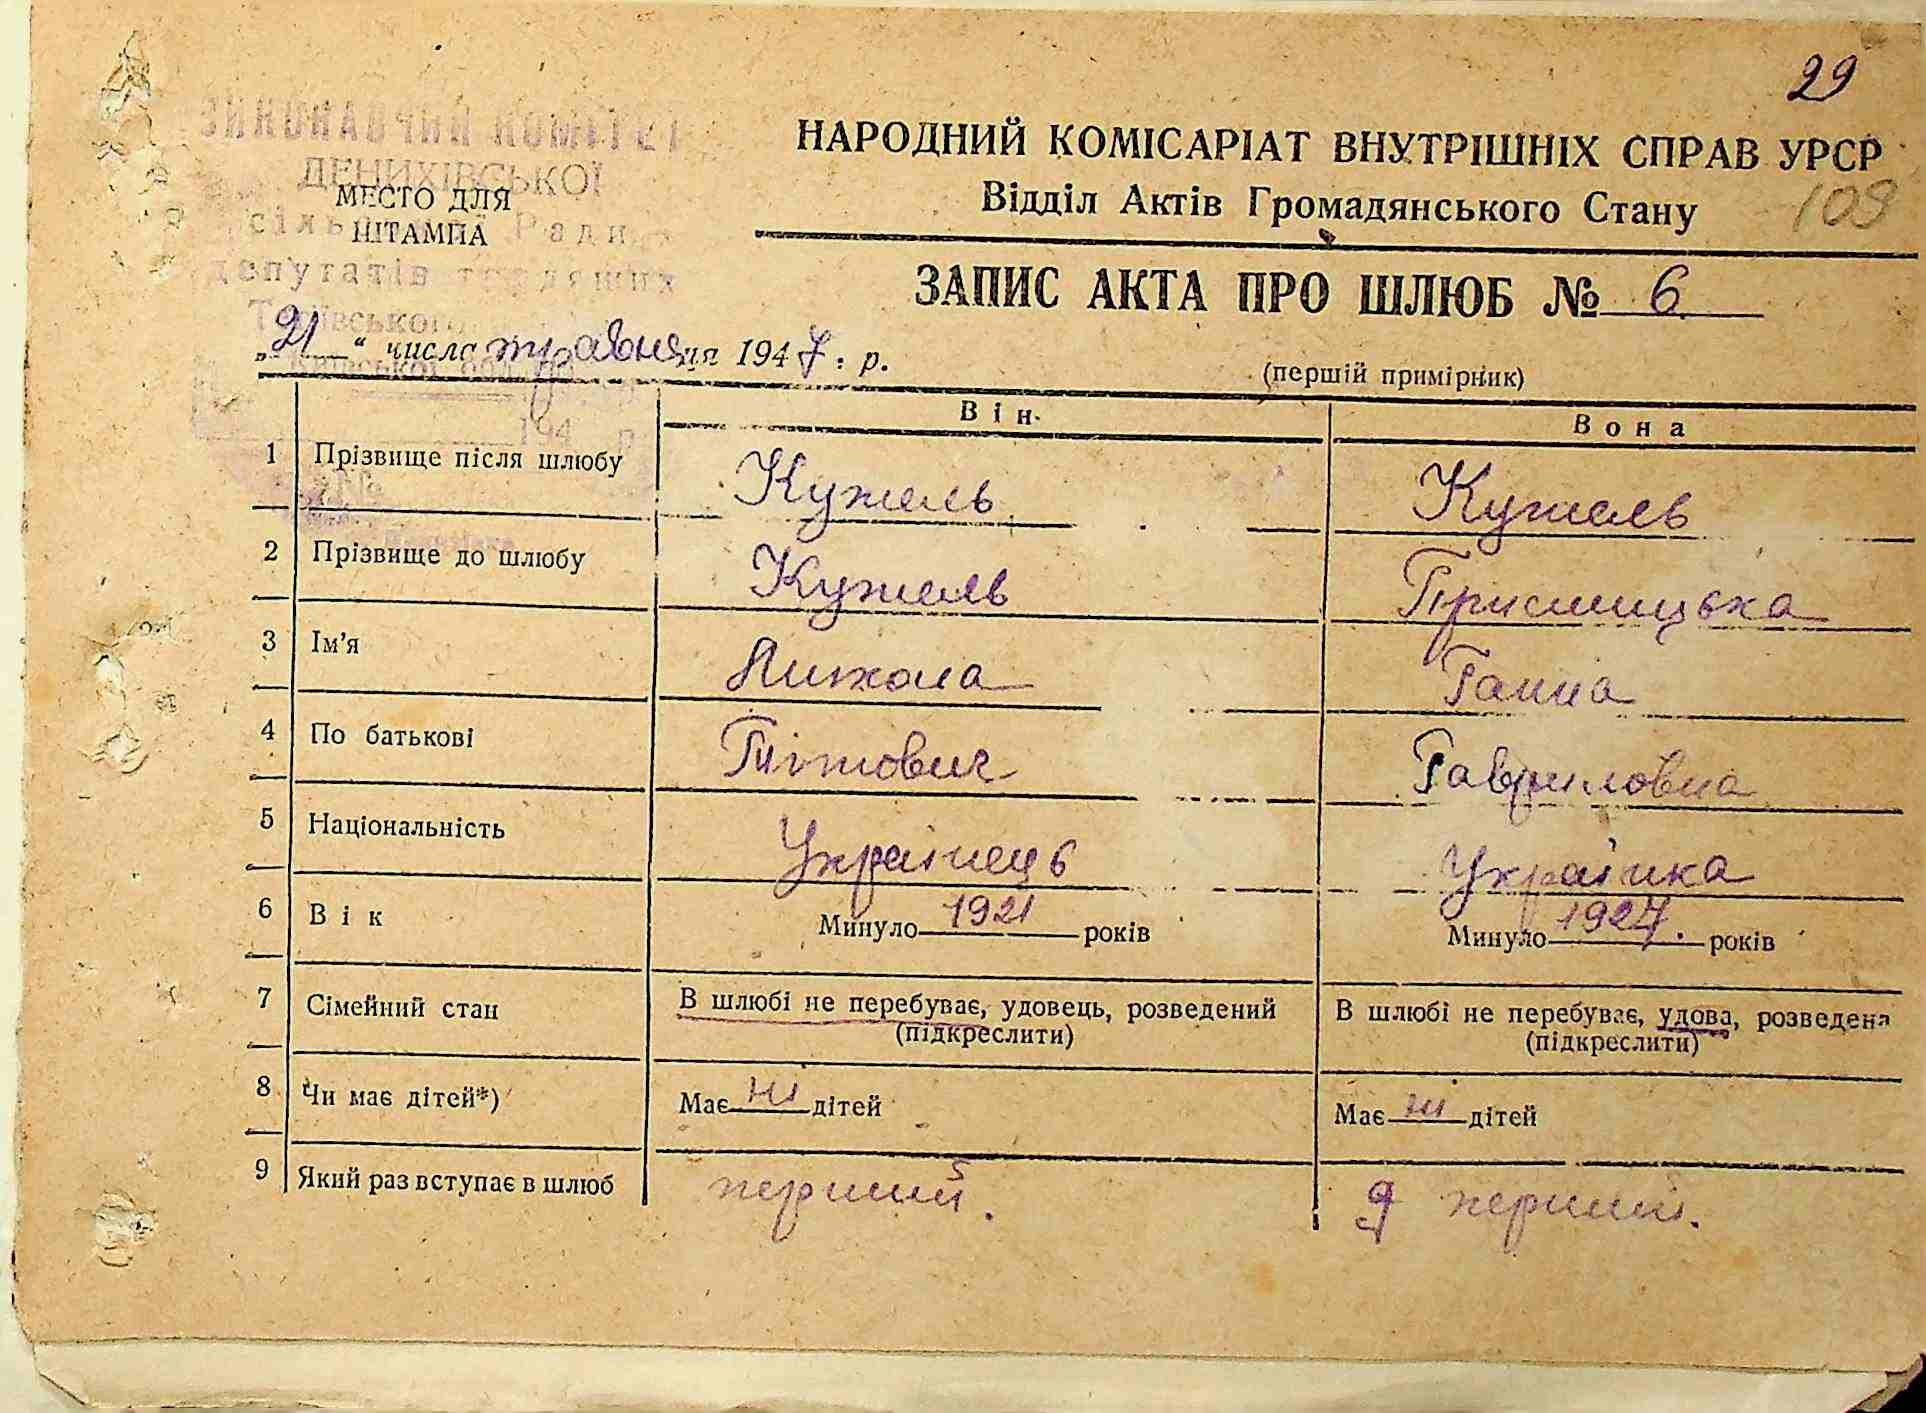 29
ВИКОНАВЧИЙ КОМІТЕТ
ДЕНИХІВСЬКОЇ
сільської Ради
депутатів трудящих
Київської обл.
194 р.
МЕСТО ДЛЯ
ШТАМПА
НАРОДНИЙ КОМІСАРІАТ ВНУТРІШНІХ СПРАВ УРСР
Відділ Актів Громадянського Стану
109
ЗАПИС АКТА ПРО ШЛЮБ № 6
„21“ числа травня ця 1947. р.
(першій примірник)
Він
Вона
1 Прізвище після шлюбу Кужель Кужель
2 Прізвище до шлюбу Кужель
3 Ім'я Микола Ганна
4 По батькові Тітович Гавриловна
5 Національність Українець Українка
6 Вік Минуло 1921 років Минуло 1927. років
7 Сімейний стан В шлюбі не перебуває, удовець, розведений В шлюбі не перебуває, удова, розведена
(підкреслити) (підкреслити)
8 Чи має дітей*) Має ні дітей Має ні дітей
9 Який раз вступає в шлюб перший. перший.